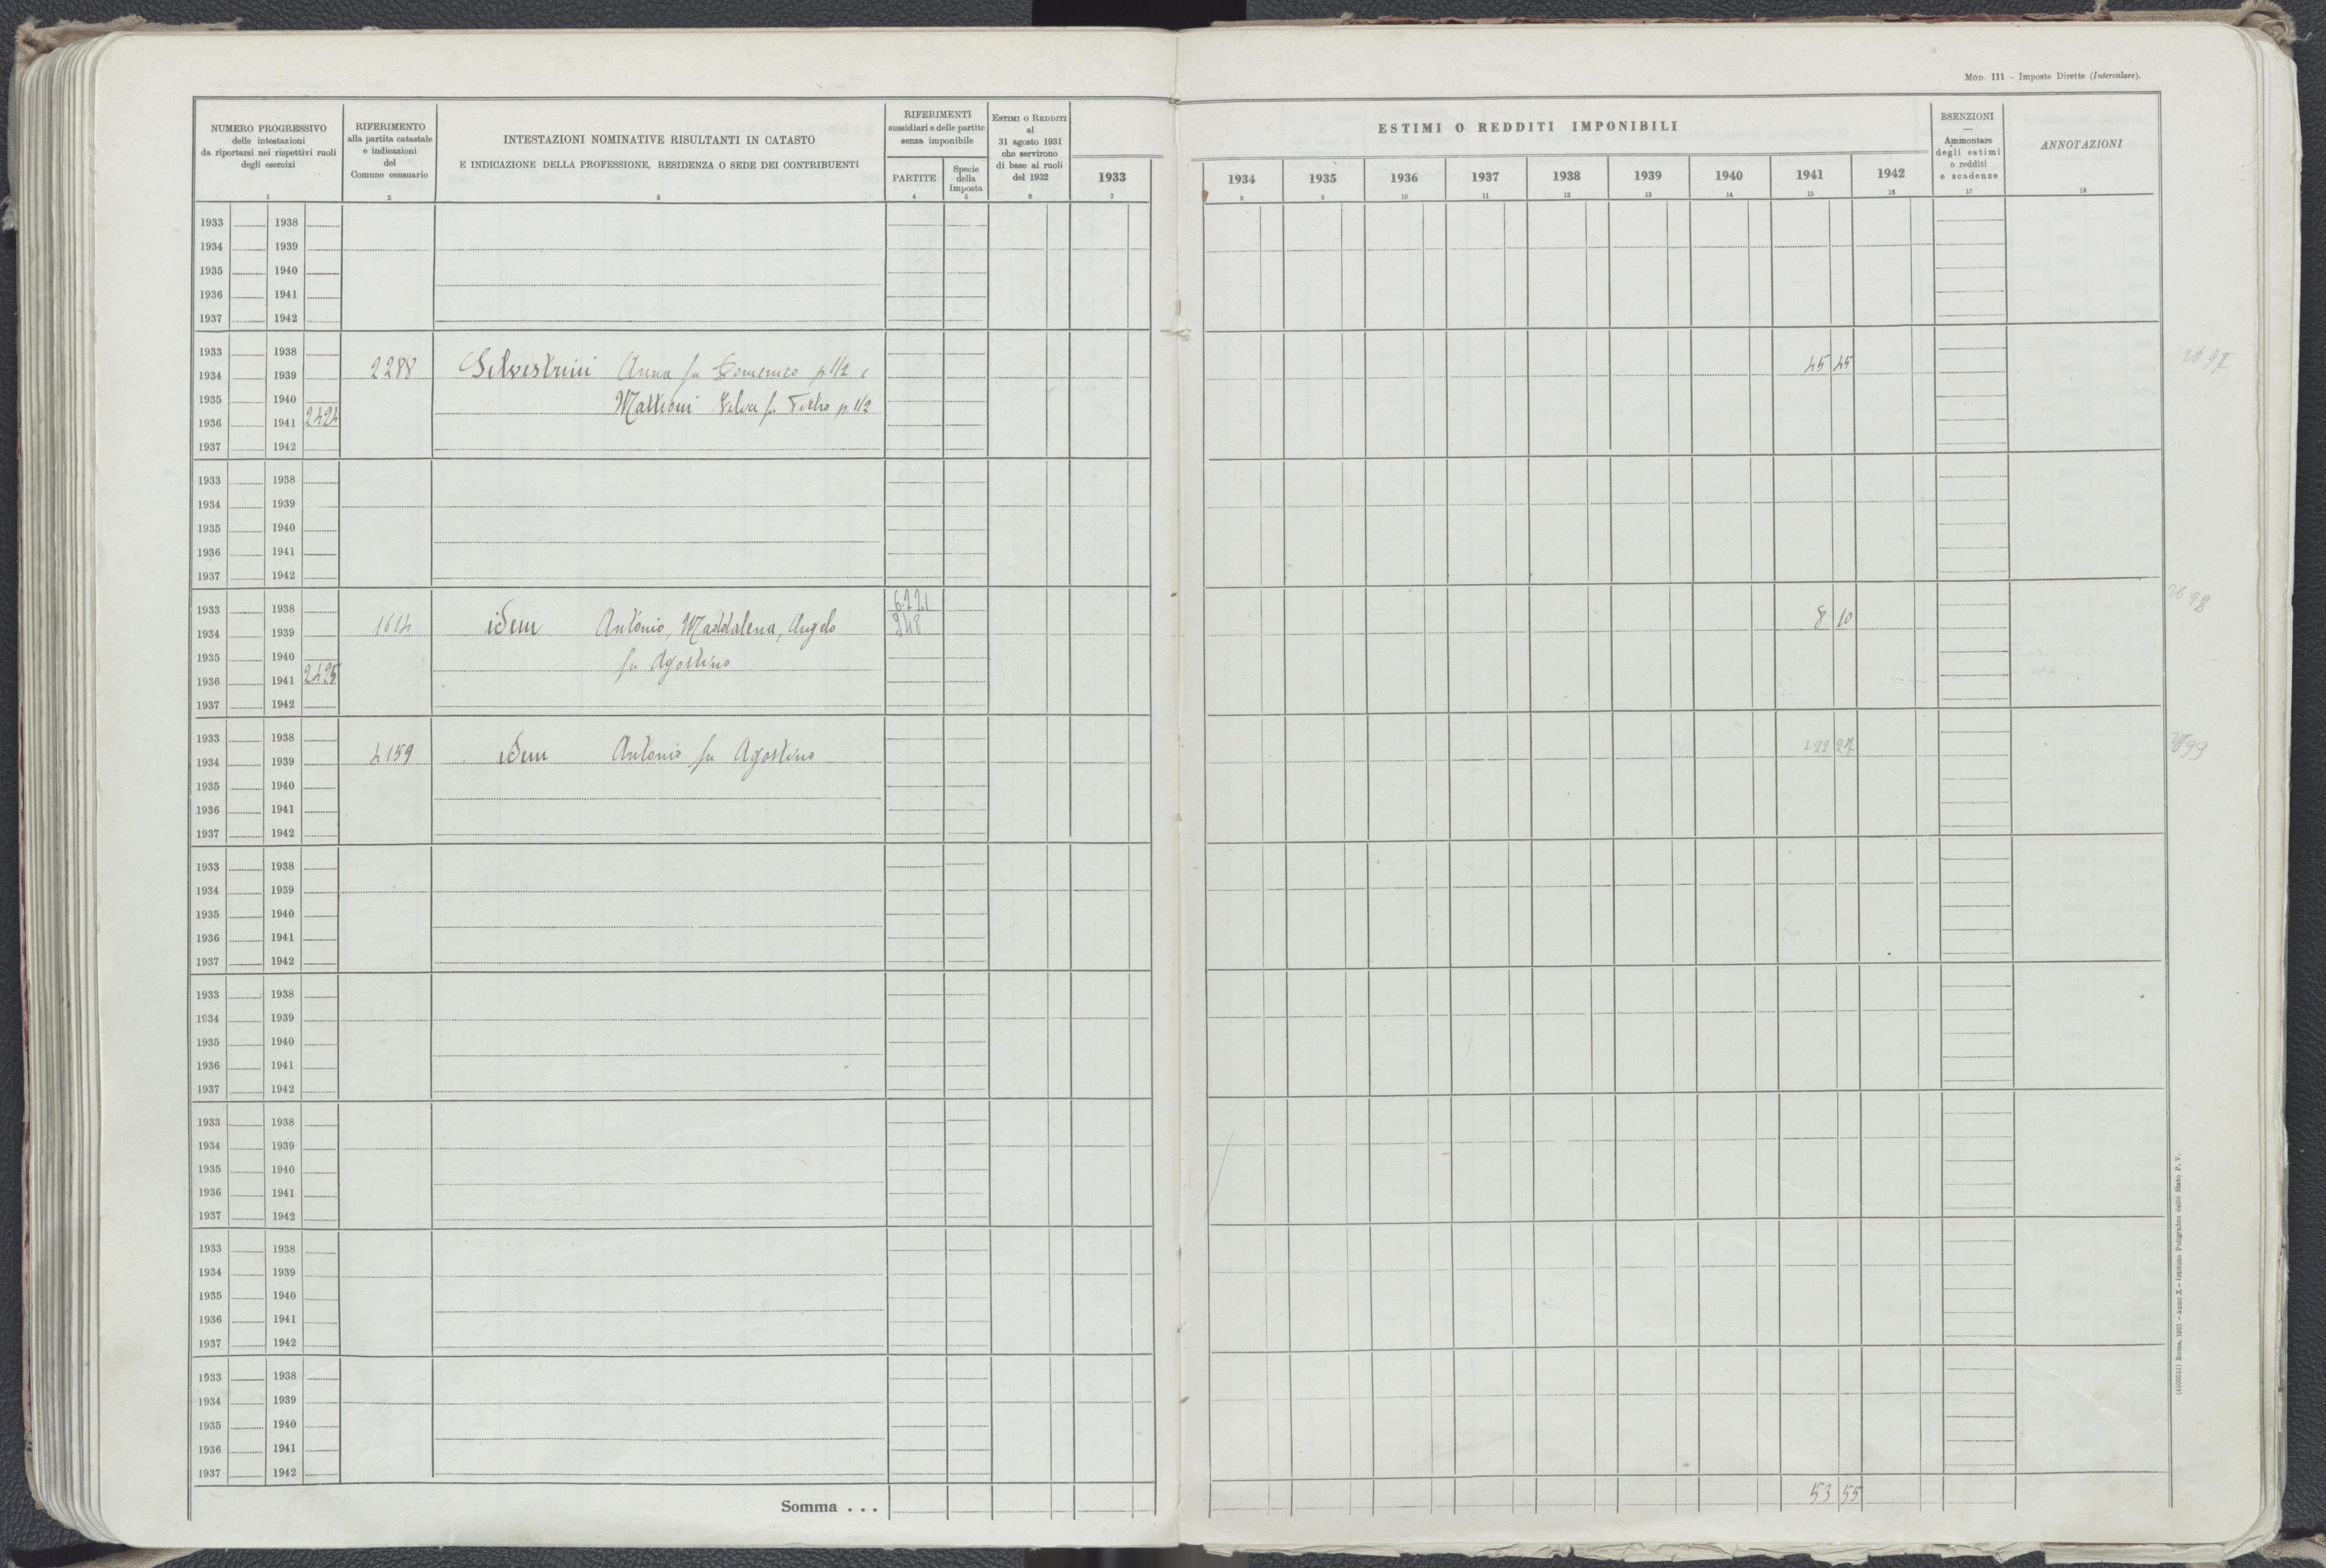 MOD. 111 – Imposte Dirette (Intercalare).
NUMERO PROGRESSIVO
delle intestazioni
da riportarsi nei rispettivi ruoli
degli esercizi
1
RIFERIMENTO
alla partita catastale
e indicazioni
del
Comune censuario
2
INTESTAZIONI NOMINATIVE RISULTANTI IN CATASTO
E INDICAZIONE DELLA PROFESSIONE, RESIDENZA O SEDE DEI CONTRIBUENTI
3
RIFERIMENTI
sussidiari e delle partite
senza imponibile
PARTITE
4
Specie
della
Imposta
5
ESTIMI O REDDITI
al
31 agosto 1931
che servirono
di base ai ruoli
del 1932
6
1933
7
ESTIMI O REDDITI IMPONIBILI
1934 1935 1936 1937 1938 1939 1940 1941 1942
8 9 10 11 12 13 14 15 16
ESENZIONI
—
Ammontare
degli estimi
o redditi
e scadenze
17
ANNOTAZIONI
18
1933 1938
1934 1939
1935 1940
1936 1941
1937 1942
1933 1938
1934 1939 2288 Silvestrini Anna fu Domenico p 1/2 e 45 45 2697
1935 1940 Mattioni fu Pietro p. 1/2
1936 1941 2424
1937 1942
1933 1938
1934 1939
1935 1940
1936 1941
1937 1942
1933 1938 2698
1934 1939 1614 idem Antonio, Maddalena, Angelo 848 8 10
1935 1940 fu Agostino
1936 1941 2425
1937 1942
1933 1938
1934 1939 4159 idem Antonio fu Agostino 2699
1935 1940
1936 1941
1937 1942
1933 1938
1934 1939
1935 1940
1936 1941
1937 1942
1933 1938
1934 1939
1935 1940
1936 1941
1937 1942
1933 1938
1934 1939
1935 1940
1936 1941
1937 1942
1933 1938
1934 1939
1935 1940
1936 1941
1937 1942
1933 1938
1934 1939
1935 1940
1936 1941
1937 1942
Somma . . . 53 55
Roma, 1931 – Anno X – Istituto Poligrafico dello Stato P. V.